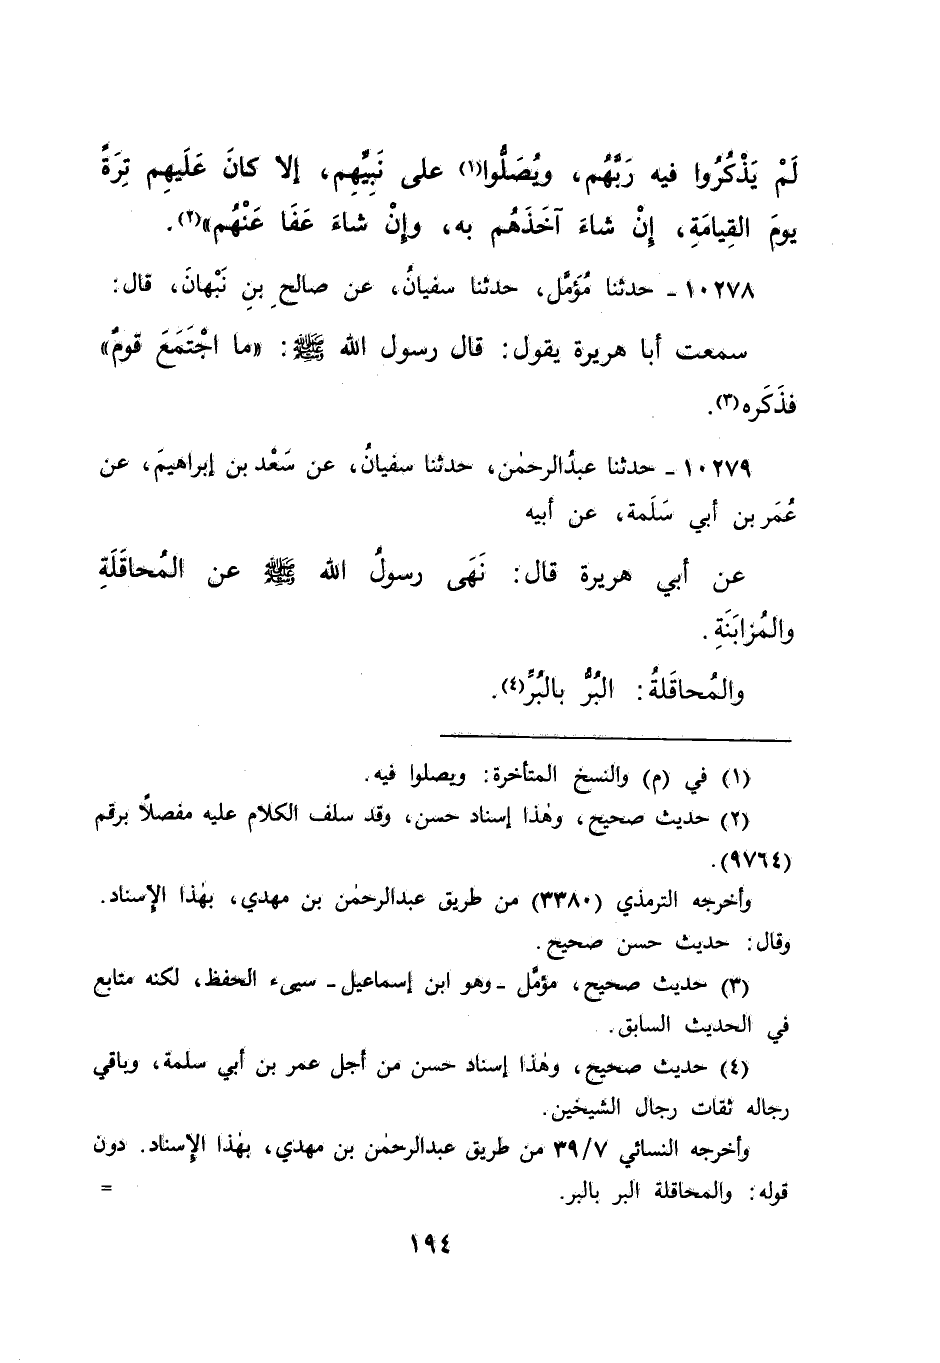 لَمْ يَذْكُرُوا فيه رَبَّهُم، ويُصَلُّوا(١) على نَبِيِّهِم، إلا كانَ عَلَيهِم تِرَةً
يومَ القِيامَةِ، إنْ شاءَ آخَذَهُم به، وإنْ شاءَ عَفَا عَنْهُم»(٢).
١٠٢٧٨ - حدثنا مُؤَمَّل، حدثنا سفيانُ، عن صالحِ بنِ نَبْهانَ، قال:
سمعت أبا هريرة يقول: قال رسول الله ﷺ: «ما اجْتَمَعَ قومٌ»
فذَكَره(٣).
١٠٢٧٩ - حدثنا عبدُالرحمٰن، حدثنا سفيانُ، عن سَعْد بن إبراهيمَ، عن
عُمَر بن أبي سَلَمة، عن أبيه
عن أبي هريرة قال: نَهَى رسولُ الله ﷺ عن المُحاقَلَةِ
والمُزابَنَةِ.
والمُحاقَلةُ: البُرُّ بالبُرِّ(٤).
(١) في (م) والنسخ المتأخرة: ويصلوا فيه.
(٢) حديث صحيح، وهٰذا إسناد حسن، وقد سلف الكلام عليه مفصلاً برقم
(٩٧٦٤).
وأخرجه الترمذي (٣٣٨٠) من طريق عبدالرحمٰن بن مهدي، بهٰذا الإسناد.
وقال: حديث حسن صحيح.
(٣) حديث صحيح، مؤمَّل - وهو ابن إسماعيل - سيىء الحفظ، لكنه متابع
في الحديث السابق.
(٤) حديث صحيح، وهٰذا إسناد حسن من أجل عمر بن أبي سلمة، وباقي
رجاله ثقات رجال الشيخين.
وأخرجه النسائي ٣٩/٧ من طريق عبدالرحمٰن بن مهدي، بهٰذا الإسناد. دون
قوله: والمحاقلة البر بالبر. =
١٩٤